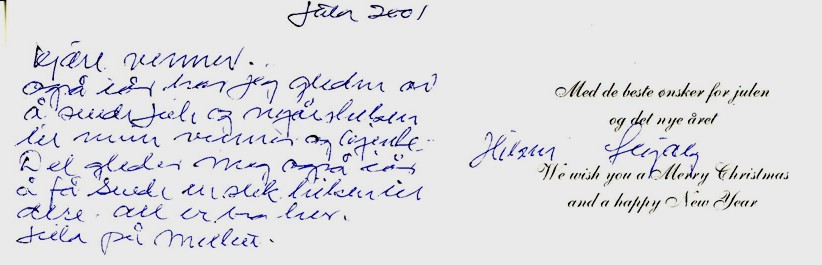 Julen 2001
Kjære venner.
også i år har jeg gleden av
å sende jule og nyårshelsen
til mine venner og kjente.
Det gleder meg også i år
å få sende en slik helsen til
dere. Alt er bra her.
på
Med de beste ønsker for julen
og det nye året
Hilsen
We wish you a Merry Christmas
and a happy New Year